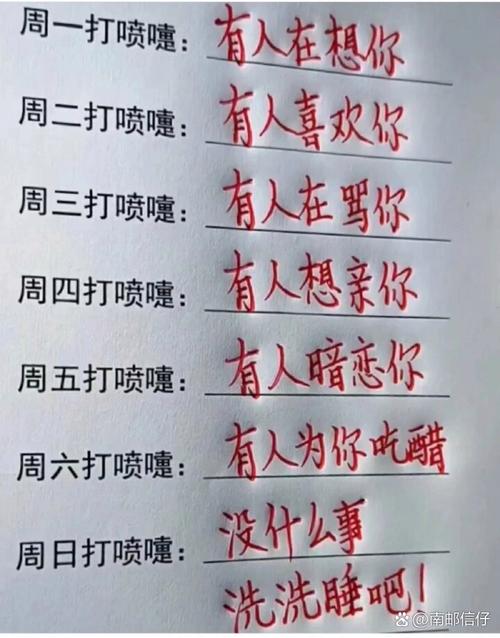 周一打喷嚏：有人在想你
周二打喷嚏：有人喜欢你
周三打喷嚏：有人在骂你
周四打喷嚏：有人想亲你
周五打喷嚏：有人暗恋你
周六打喷嚏：有人为你吃醋
周日打喷嚏：没什么事
洗洗睡吧！
@南邮信仔